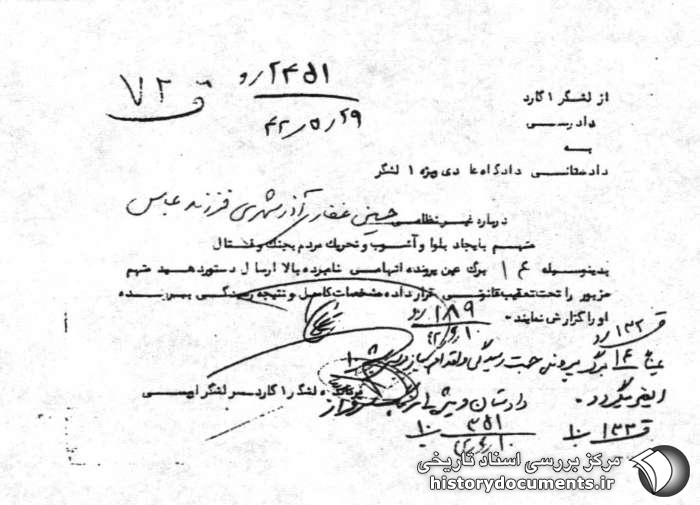 ۲۴۵۱ رو
۴۲٫۵٫۲۹
ق ۷۲
از لشگر ۱ گارد
دادرسی
به
دادستانی دادگاه عادی ویژه ۱ لشگر
درباره غیرنظامی حسین غفاری آذرشهری فرزند عباس
متهم بایجاد بلوا و آشوب و تحریک مردم بجنگ و قتال
بدینوسیله ۱۶ برگ عین پرونده اتهامی نامبرده بالا ارسال دستور دهید متهم
مزبور را تحت تعقیب قانونی قرار داده مشخصات کامل و نتیجه رسیدگی به پرونده
او را گزارش نمایند.
۱۸۹ رو
ق ۱۳۲ رو
برگ پیرونی جهت رسیدگی و اقدام
فرمانده لشگر ۱ گارد سرلشگر اویسی
دادستان ویژه
۳۵۱
ق ۱۳۳
مرکز بررسی اسناد تاریخی
historydocuments.ir